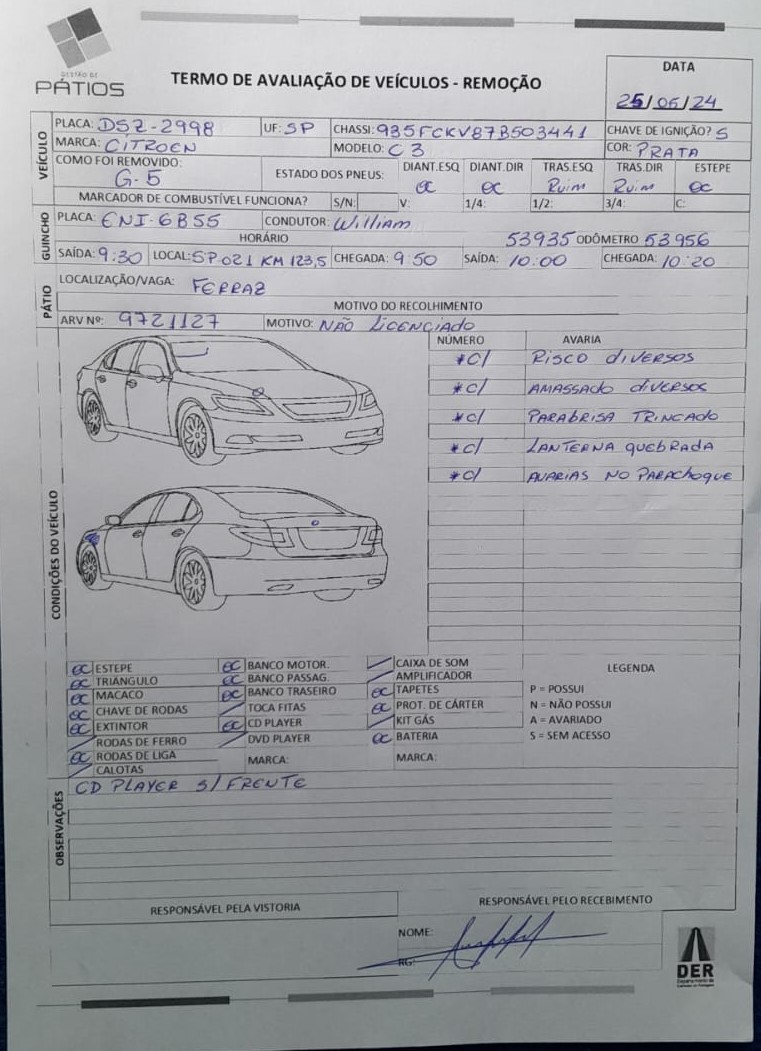 GESTÃO DE
PÁTIOS
TERMO DE AVALIAÇÃO DE VEÍCULOS - REMOÇÃO
DATA
25/06/24
VEÍCULO
PLACA: DSZ-2998 UF: SP CHASSI: 935FCKV87B503441 CHAVE DE IGNIÇÃO? S
MARCA: CITROEN MODELO: C3 COR: PRATA
COMO FOI REMOVIDO: G-5 ESTADO DOS PNEUS: DIANT.ESQ OC DIANT.DIR OC TRAS.ESQ RUIM TRAS.DIR RUIM ESTEPE OC
MARCADOR DE COMBUSTÍVEL FUNCIONA? S/N: V: 1/4: 1/2: 3/4: C:
GUINCHO
PLACA: ENI-6B55 CONDUTOR: William
HORÁRIO 53935 ODÔMETRO 53956
SAÍDA: 9:30 LOCAL: SP021 KM 123,5 CHEGADA: 9:50 SAÍDA: 10:00 CHEGADA: 10:20
PÁTIO
LOCALIZAÇÃO/VAGA: FERRAZ
MOTIVO DO RECOLHIMENTO
ARV Nº: 9721127 MOTIVO: NÃO LICENCIADO
CONDIÇÕES DO VEÍCULO
NÚMERO AVARIA
*C/ RISCO DIVERSOS
*C/ AMASSADO DIVERSOS
*C/ PARABRISA TRINCADO
*C/ LANTERNA QUEBRADA
*C/ AVARIAS NO PARACHOQUE
OC ESTEPE OC BANCO MOTOR. / CAIXA DE SOM LEGENDA
OC TRIÂNGULO OC BANCO PASSAG. / AMPLIFICADOR
OC MACACO OC BANCO TRASEIRO OC TAPETES P = POSSUI
OC CHAVE DE RODAS / TOCA FITAS OC PROT. DE CÁRTER N = NÃO POSSUI
OC EXTINTOR OC CD PLAYER / KIT GÁS A = AVARIADO
/ RODAS DE FERRO / DVD PLAYER OC BATERIA S = SEM ACESSO
OC RODAS DE LIGA MARCA: MARCA:
/ CALOTAS
OBSERVAÇÕES
CD PLAYER S/ FRENTE
RESPONSÁVEL PELA VISTORIA RESPONSÁVEL PELO RECEBIMENTO
NOME:
RG:
DER